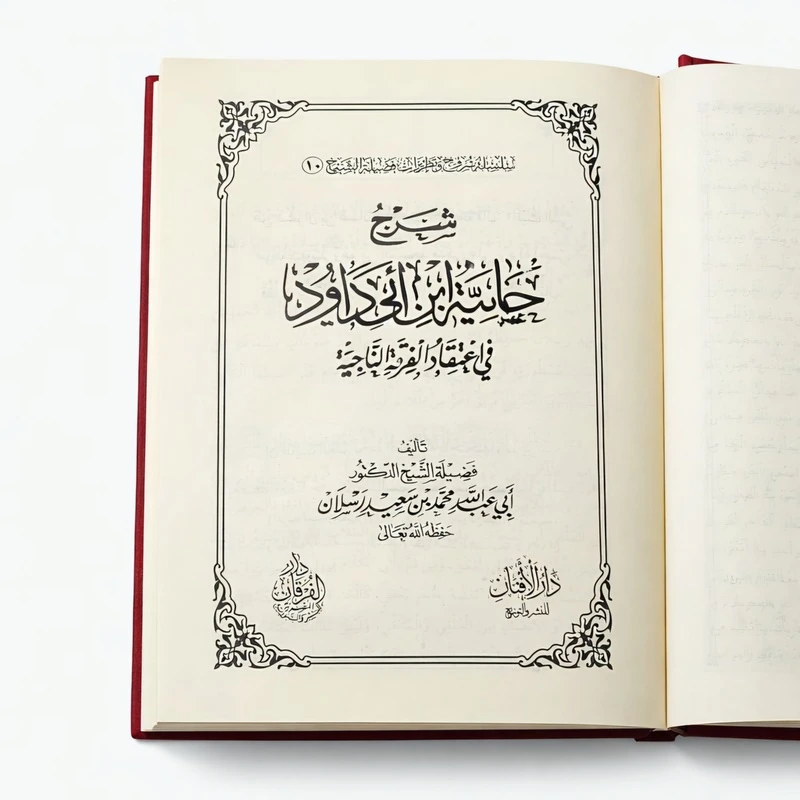 سلسلة شروح وتفريغات فضيلة الشيخ ١٠
شَرْحُ
حَائِيَّةِ ابْنِ أَبِي دَاوُدَ
فِي اعْتِقَادِ الْفِرْقَةِ النَّاجِيَةِ
تَأْلِيفُ
فَضِيلَةِ الشَّيْخِ الدُّكْتُورِ
أَبِي عَبْدِ اللهِ مُحَمَّد بْنِ سَعِيد رَسْلَان
حَفِظَهُ اللهُ تَعَالَى
دار الفرقان
للنشر والتوزيع